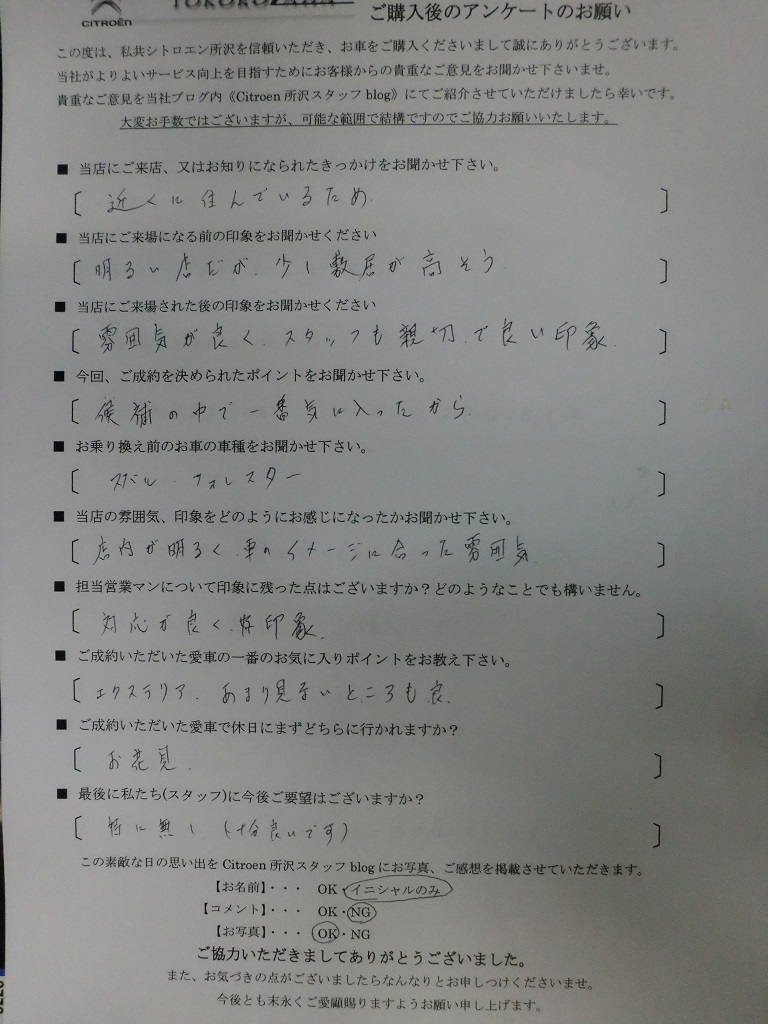 CITROËN
TOKOROZAWA
ご購入後のアンケートのお願い
この度は、私共シトロエン所沢を信頼いただき、お車をご購入くださいまして誠にありがとうございます。
当社がよりよいサービス向上を目指すためにお客様からの貴重なご意見をお聞かせ下さいませ。
貴重なご意見を当社ブログ内《Citroen 所沢スタッフ blog》にてご紹介させていただけましたら幸いです。
大変お手数ではございますが、可能な範囲で結構ですのでご協力お願いいたします。
■ 当店にご来店、又はお知りになられたきっかけをお聞かせ下さい。
[ 近くに住んでいるため. ]
■ 当店にご来場になる前の印象をお聞かせください
[ 明るい店だが、少し敷居が高そう. ]
■ 当店にご来場された後の印象をお聞かせください
[ 雰囲気が良く、スタッフも親切で良い印象. ]
■ 今回、ご成約を決められたポイントをお聞かせ下さい。
[ 候補の中で一番気に入ったから. ]
■ お乗り換え前のお車の車種をお聞かせ下さい。
[ スバル・フォレスター ]
■ 当店の雰囲気、印象をどのようにお感じになったかお聞かせ下さい。
[ 店内が明るく、車のイメージに合った雰囲気. ]
■ 担当営業マンについて印象に残った点はございますか？どのようなことでも構いません。
[ 対応が良く、好印象. ]
■ ご成約いただいた愛車の一番のお気に入りポイントをお教え下さい。
[ エクステリア、あまり見ないところも良. ]
■ ご成約いただいた愛車で休日にまずどちらに行かれますか？
[ お花見. ]
■ 最後に私たち(スタッフ)に今後ご要望はございますか？
[ 特に無し (十分良いです) ]
この素敵な日の思い出を Citroen 所沢スタッフ blog にお写真、ご感想を掲載させていただきます。
【お名前】・・・ OK・イニシャルのみ
【コメント】・・・ OK・NG
【お写真】・・・ OK・NG
ご協力いただきましてありがとうございました。
また、お気づきの点がございましたらなんなりとお申しつけくださいませ。
今後とも末永くご愛顧賜りますようお願い申し上げます。